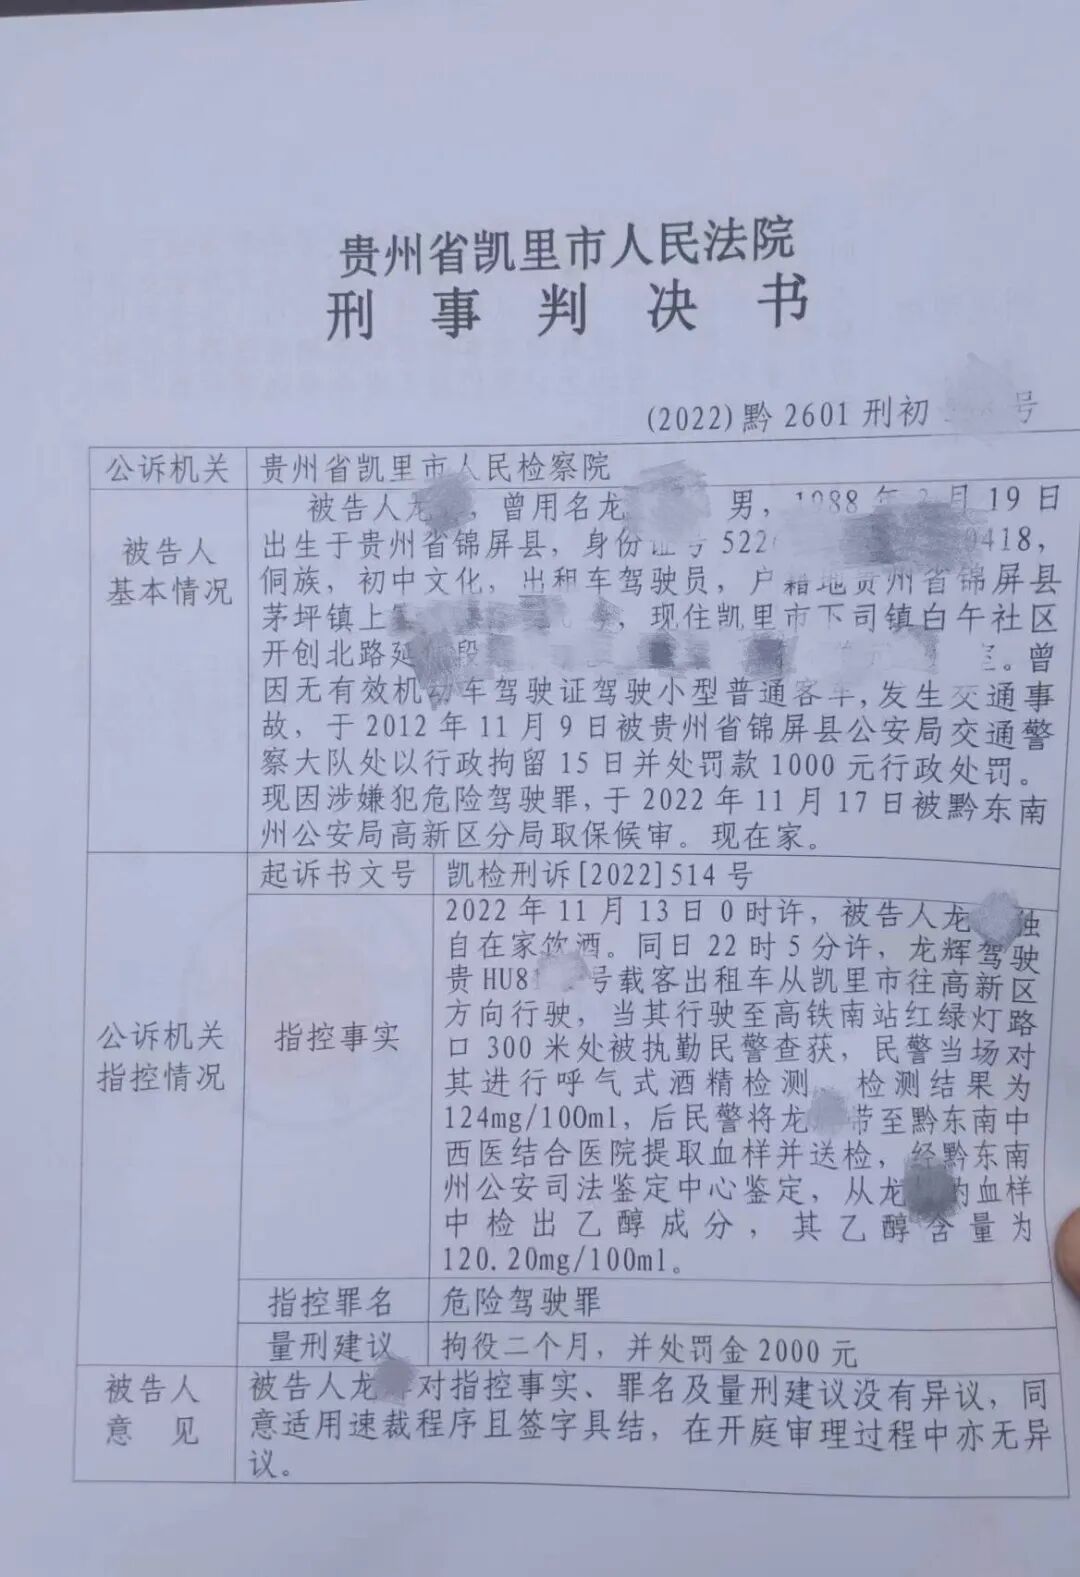 贵州省凯里市人民法院
刑事判决书
(2022)黔2601刑初 号
公诉机关 贵州省凯里市人民检察院
被告人
基本情况
被告人龙 ,曾用名龙 男, 1988年 月19日
出生于贵州省锦屏县,身份证号522 0418,
侗族,初中文化,出租车驾驶员,户籍地贵州省锦屏县
茅坪镇上 ,现住凯里市下司镇白午社区
开创北路延伸段 室。曾
因无有效机动车驾驶证驾驶小型普通客车,发生交通事
故,于2012年11月9日被贵州省锦屏县公安局交通警
察大队处以行政拘留15日并处罚款1000元行政处罚。
现因涉嫌犯危险驾驶罪,于2022年11月17日被黔东南
州公安局高新区分局取保候审。现在家。
公诉机关
指控情况
起诉书文号 凯检刑诉[2022]514号
指控事实
2022年11月13日0时许,被告人龙 独
自在家饮酒。同日22时5分许,龙辉驾驶
贵HU8 号载客出租车从凯里市往高新区
方向行驶,当其行驶至高铁南站红绿灯路
口300米处被执勤民警查获,民警当场对
其进行呼气式酒精检测 检测结果为
124mg/100ml,后民警将龙 带至黔东南中
西医结合医院提取血样并送检,经黔东南
州公安司法鉴定中心鉴定,从龙 的血样
中检出乙醇成分,其乙醇含量为
120.20mg/100ml。
指控罪名 危险驾驶罪
量刑建议 拘役二个月,并处罚金2000元
被告人
意见
被告人龙 对指控事实、罪名及量刑建议没有异议,同
意适用速裁程序且签字具结,在开庭审理过程中亦无异
议。